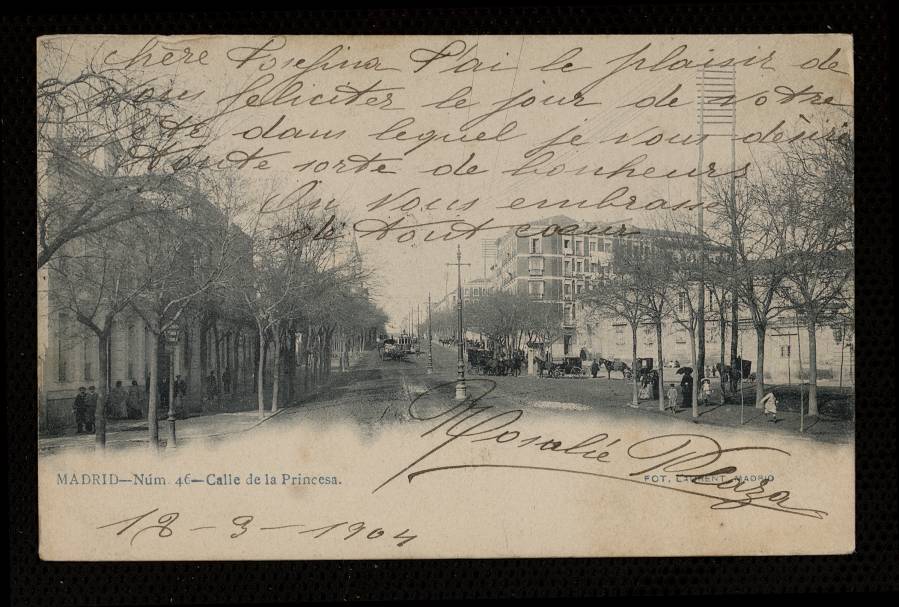 Chère Josefina J'ai le plaisir de
vous feliciter le jour de votre
fête dans lequel je vous désire
toute sorte de bonheurs
On vous embrasse
de tout cœur
Rosalie Plaza
MADRID—Núm. 46—Calle de la Princesa.
FOT. LAURENT. MADRID
18-3-1904